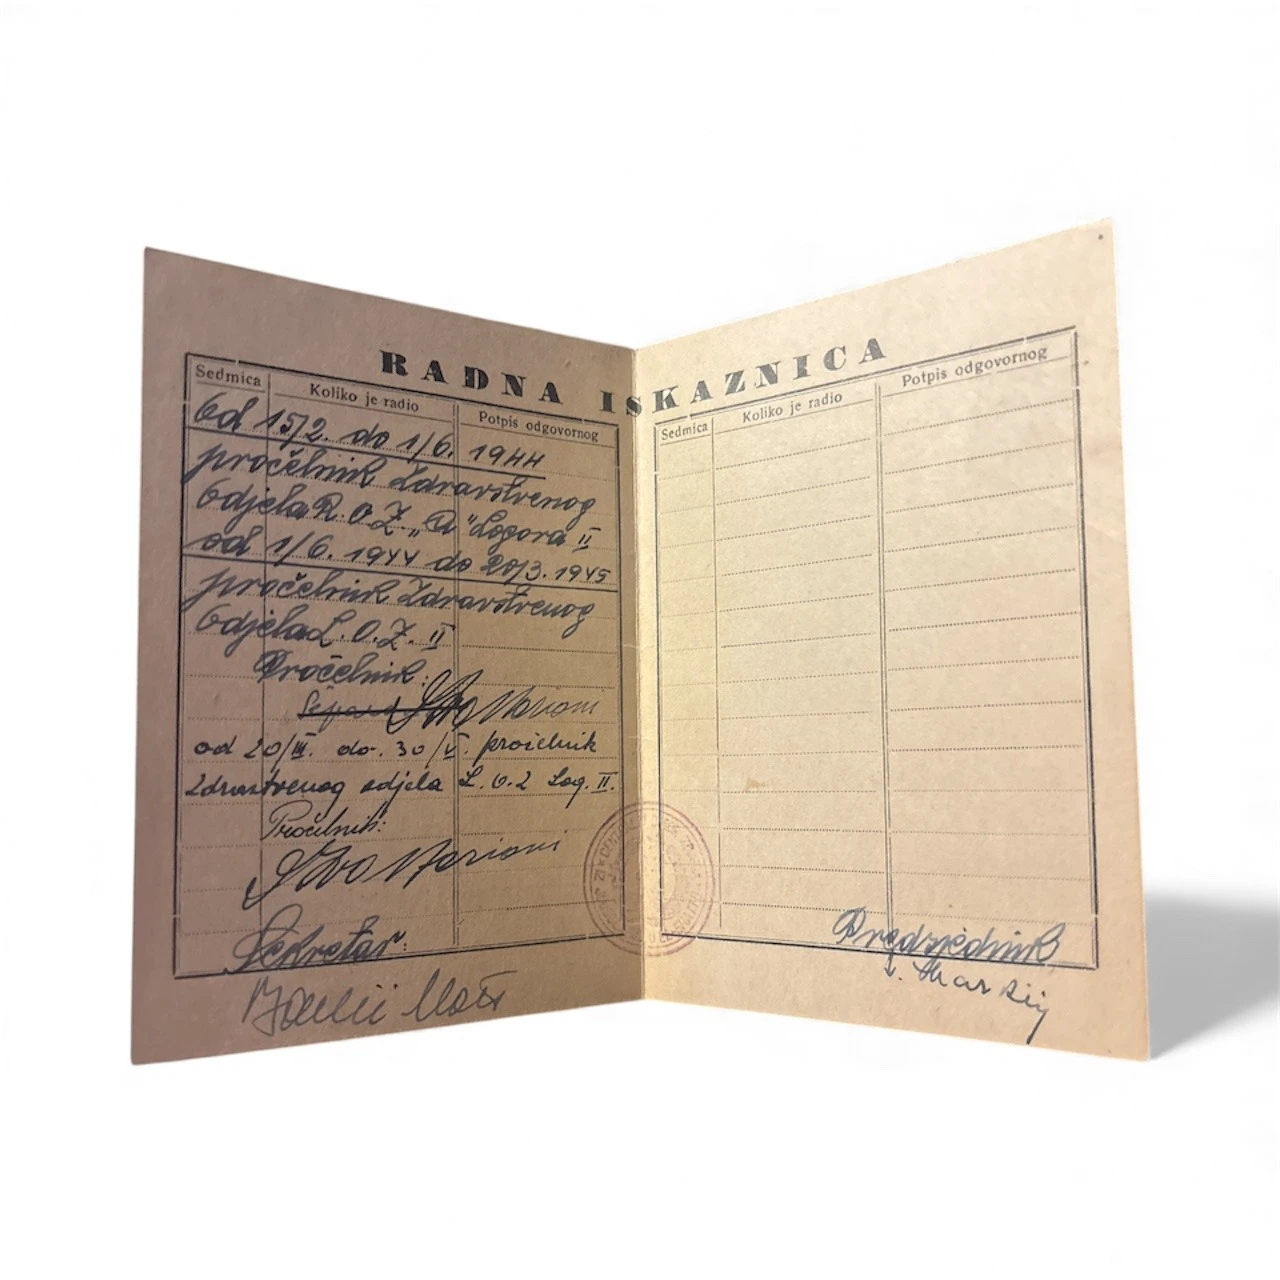 RADNA ISKAZNICA
Sedmica Koliko je radio Potpis odgovornog
Od 15/2. do 1/6. 1944
pročelnik Zdravstvenog
Odjela R. O. Z. „A" Logora II
od 1/6. 1944 do 20/3. 1945
pročelnik Zdravstvenog
Odjela L. O. Z. II
Pročelnik:
Ivo Marioni
od 20/III. do. 30/V. pročelnik
Zdravstvenog odjela L. O. Z Log. II.
Pročelnik:
Ivo Marioni
Sekretar:
Sedmica Koliko je radio Potpis odgovornog
Predsjednik